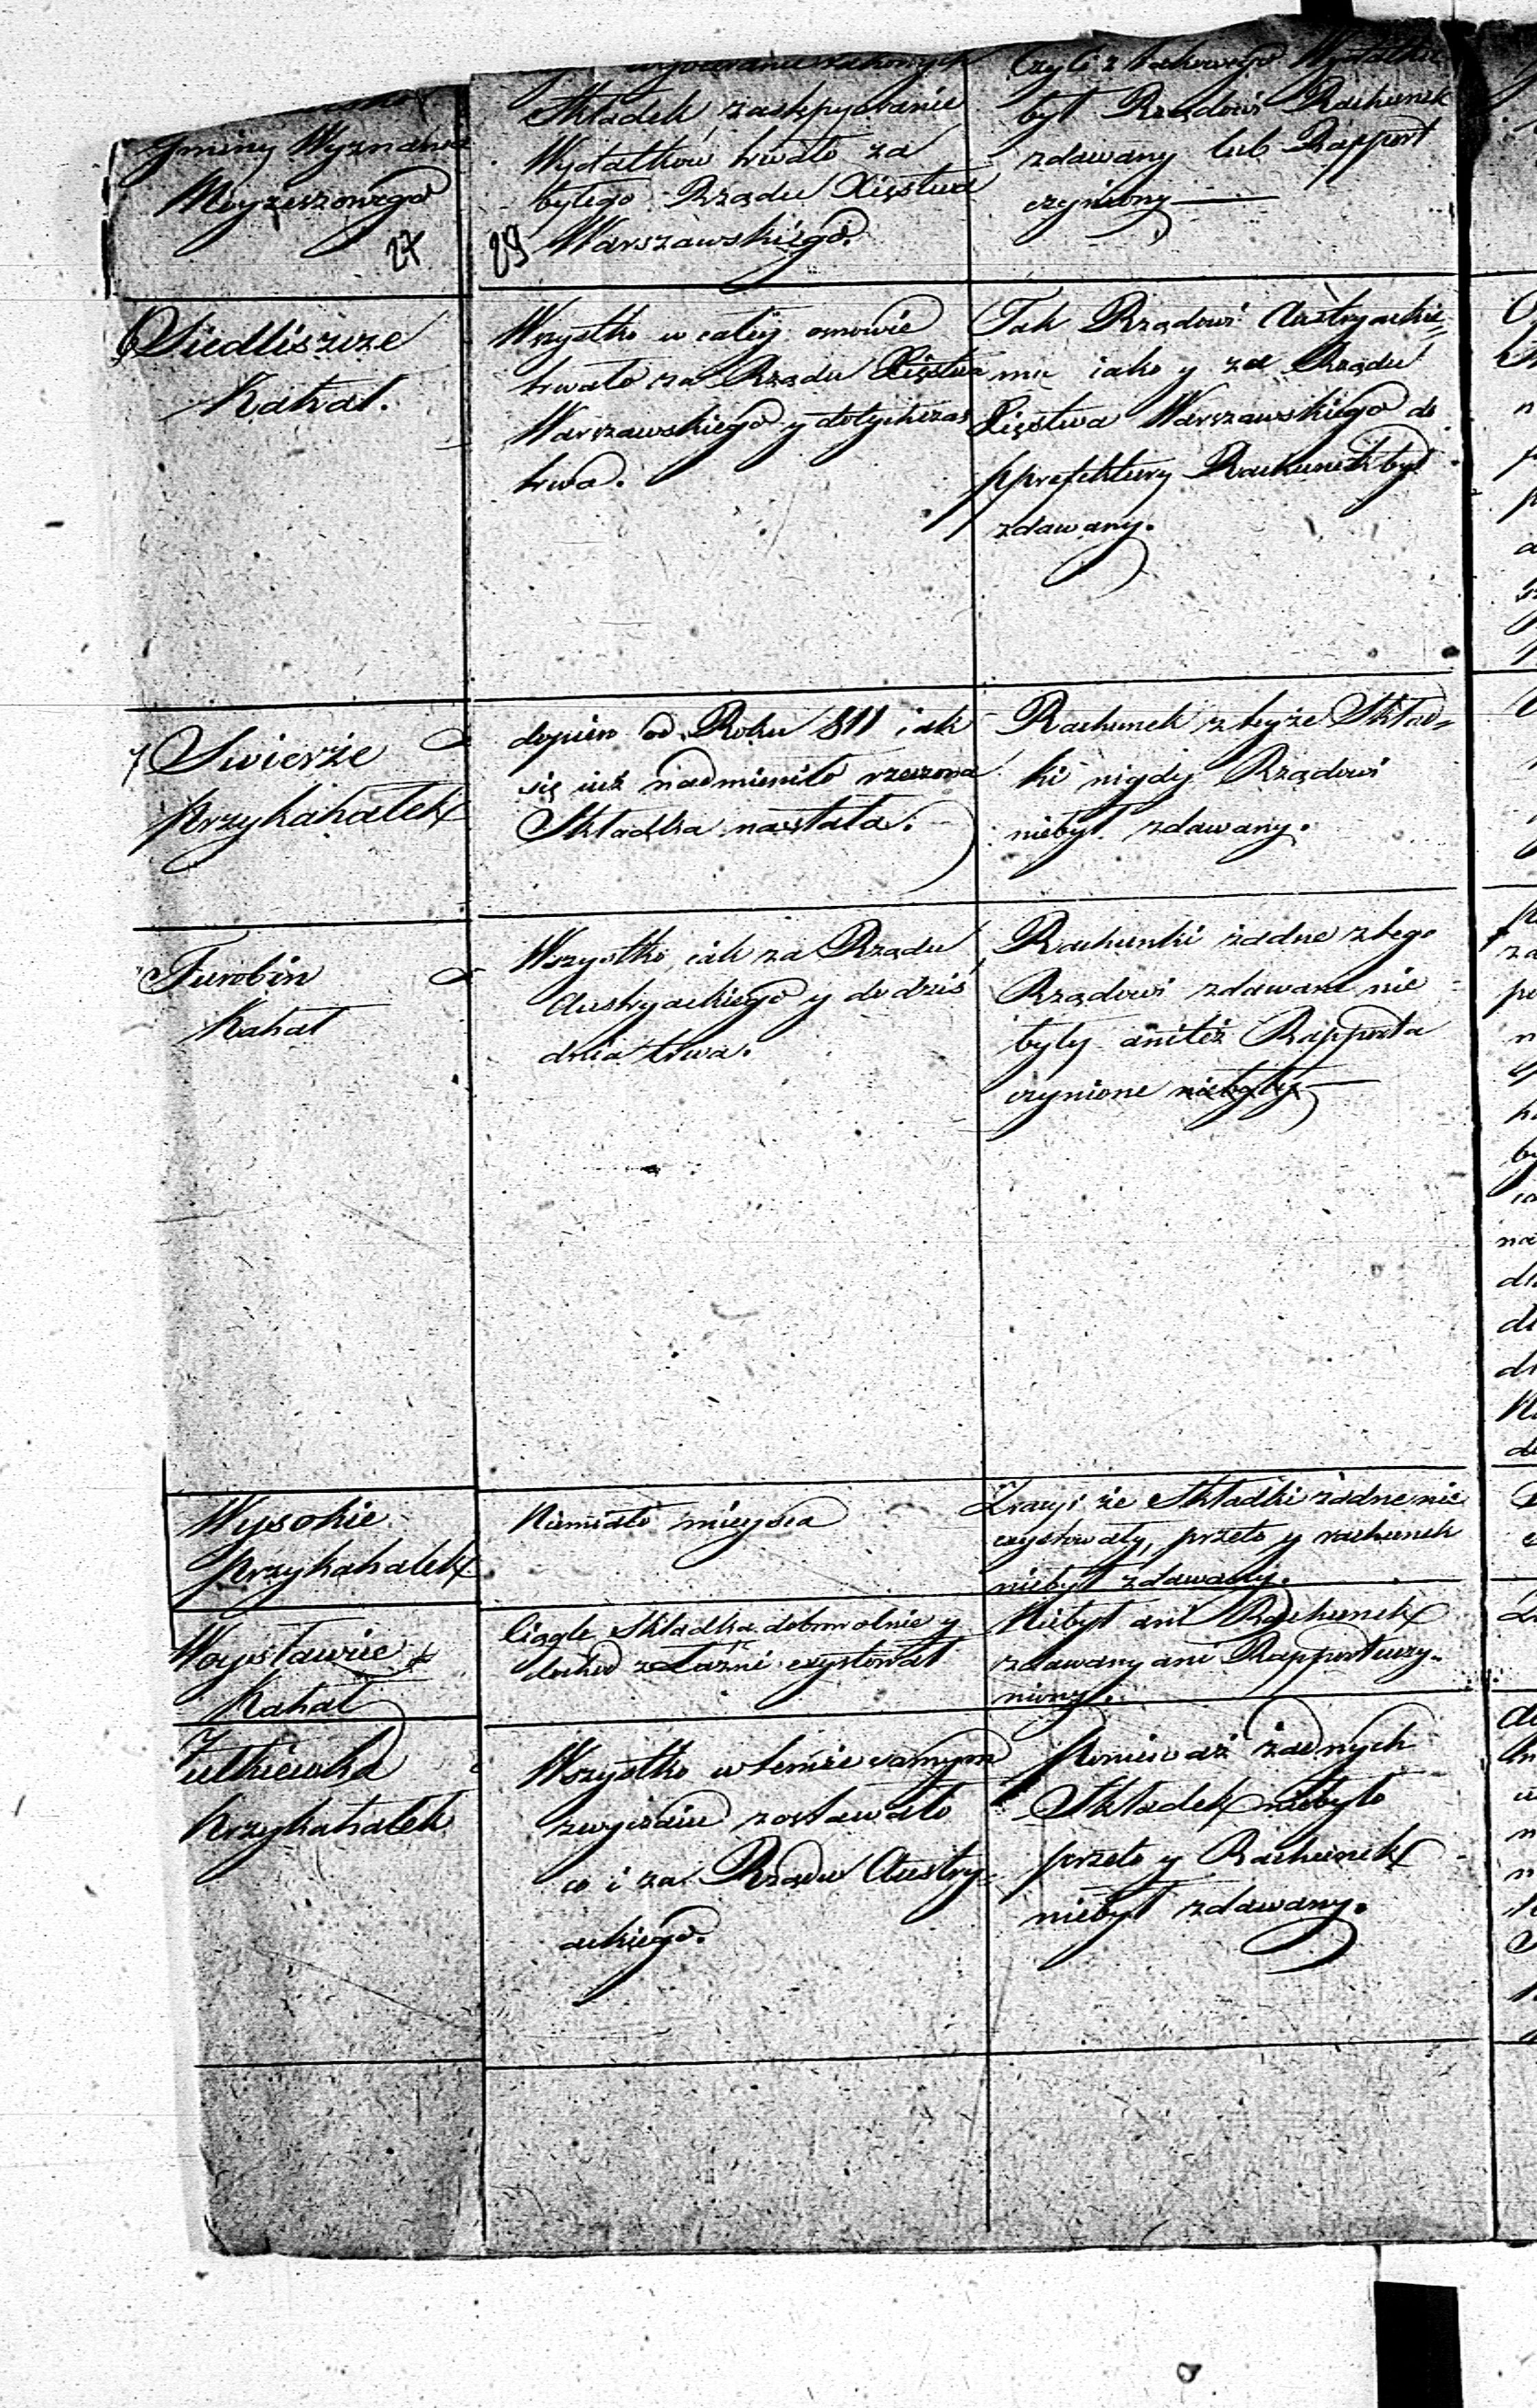 Gminy Wyznania
Moyżeszowego
27
Składek, zastępywanie
Wydatków trwało za
byłego Rządu Xięstwa
29 Warszawskiego.
Czyli z takowego Wydatku
był Rządowi Rachunek
zdawany lub Rapport
czyniony —
Siedliszcze
Kahał.
Wszystko w całéy osnowie
trwało za Rządu Xięstwa
Warszawskiego y dotychczas
trwa.
Tak Rządowi Austryackie=
mu iako y za Rządu
Xięstwa Warszawskiego do
pprefektury Rachunek był
zdawany.
7 Swierże
przykahałek
dopiero od Roku 811 iak
się iuż nadmieniło rzeczona
Składka nastała.
Rachunek z teyże Skład=
ki nigdy Rządowi
niebył zdawany.
Turobin
Kahał
Wszystko iak za Rządu
Austryackiego y do dziś
dnia trwa.
Rachunki żadne z tego
Rządowi zdawane nie
były aniteż Rapporta
czynione niebyły —
Wysokie
przykahałek
Niemiało mieysca
Zracyi że Składki żadne nie
exystowały, przeto y rachunek
niebył zdawany.
Woysławice
Kahał
Ciągle Składka dobrowolnie y
dochod z Łaźni exystował
Niebył ani Rachunek
zdawany ani Rapport uczy-
niony.
Żułkiewka
Przykahałek
Wszystko w temże samym
zwyczaiu zostawało
co i za Rządu Austry=
ackiego.
Ponieważ żadnych
Składek niebyło
przeto y Rachunek
niebył zdawany.